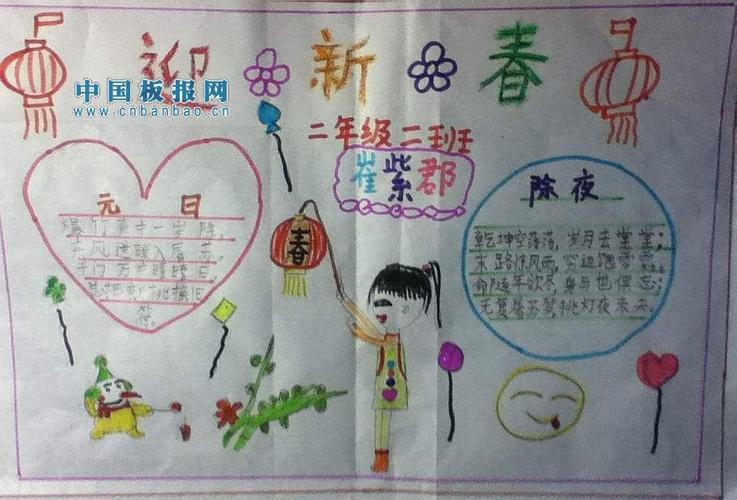 迎新春
中国板报网
www.cnbanbao.cn
二年级二班
崔紫郡
元日
爆竹声中一岁除,
风送暖入屠苏。
千门万户瞳瞳日,
总把新桃换旧
符。
春
除夜
乾坤空落落,岁月去堂堂;
末路惊风雨,穷边饱雪霜。
命随年欲尽,身与世俱忘;
无复屠苏梦,挑灯夜未央。